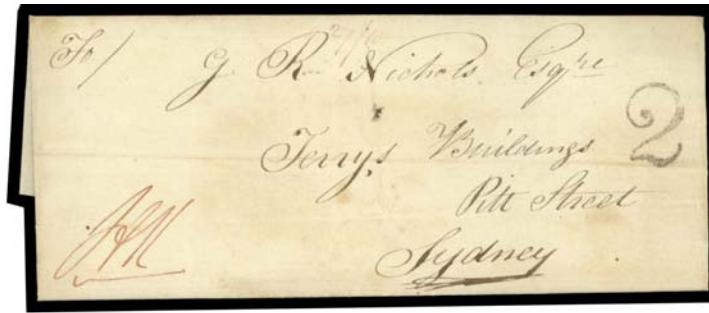 To/ G. R. Nichols Esqre
Terrys Buildings
2
Pitt Street
Sydney